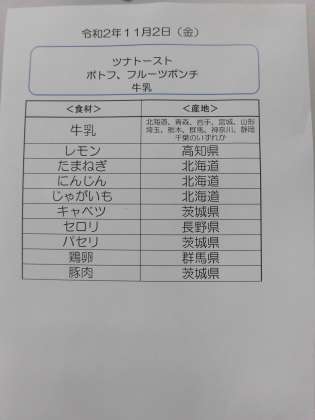 令和2年11月2日（金）
ツナトースト
ポトフ、フルーツポンチ
牛乳
＜食材＞ ＜産地＞
牛乳 北海道、青森、岩手、宮城、山形
埼玉、栃木、群馬、神奈川、静岡
千葉のいずれか
レモン 高知県
たまねぎ 北海道
にんじん 北海道
じゃがいも 北海道
キャベツ 茨城県
セロリ 長野県
パセリ 茨城県
鶏卵 群馬県
豚肉 茨城県